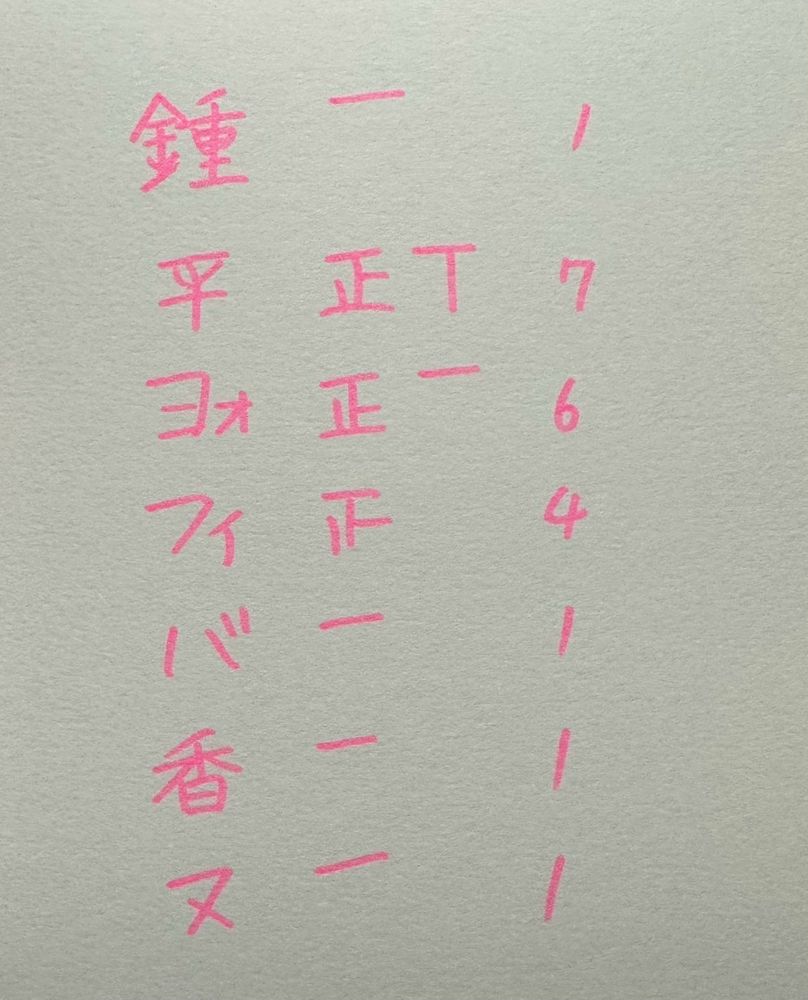 鍾 一 1
平 正丅 7
ヨォ 正一 6
フィ 正 4
バ 一 1
香 一 1
ヌ 一 1